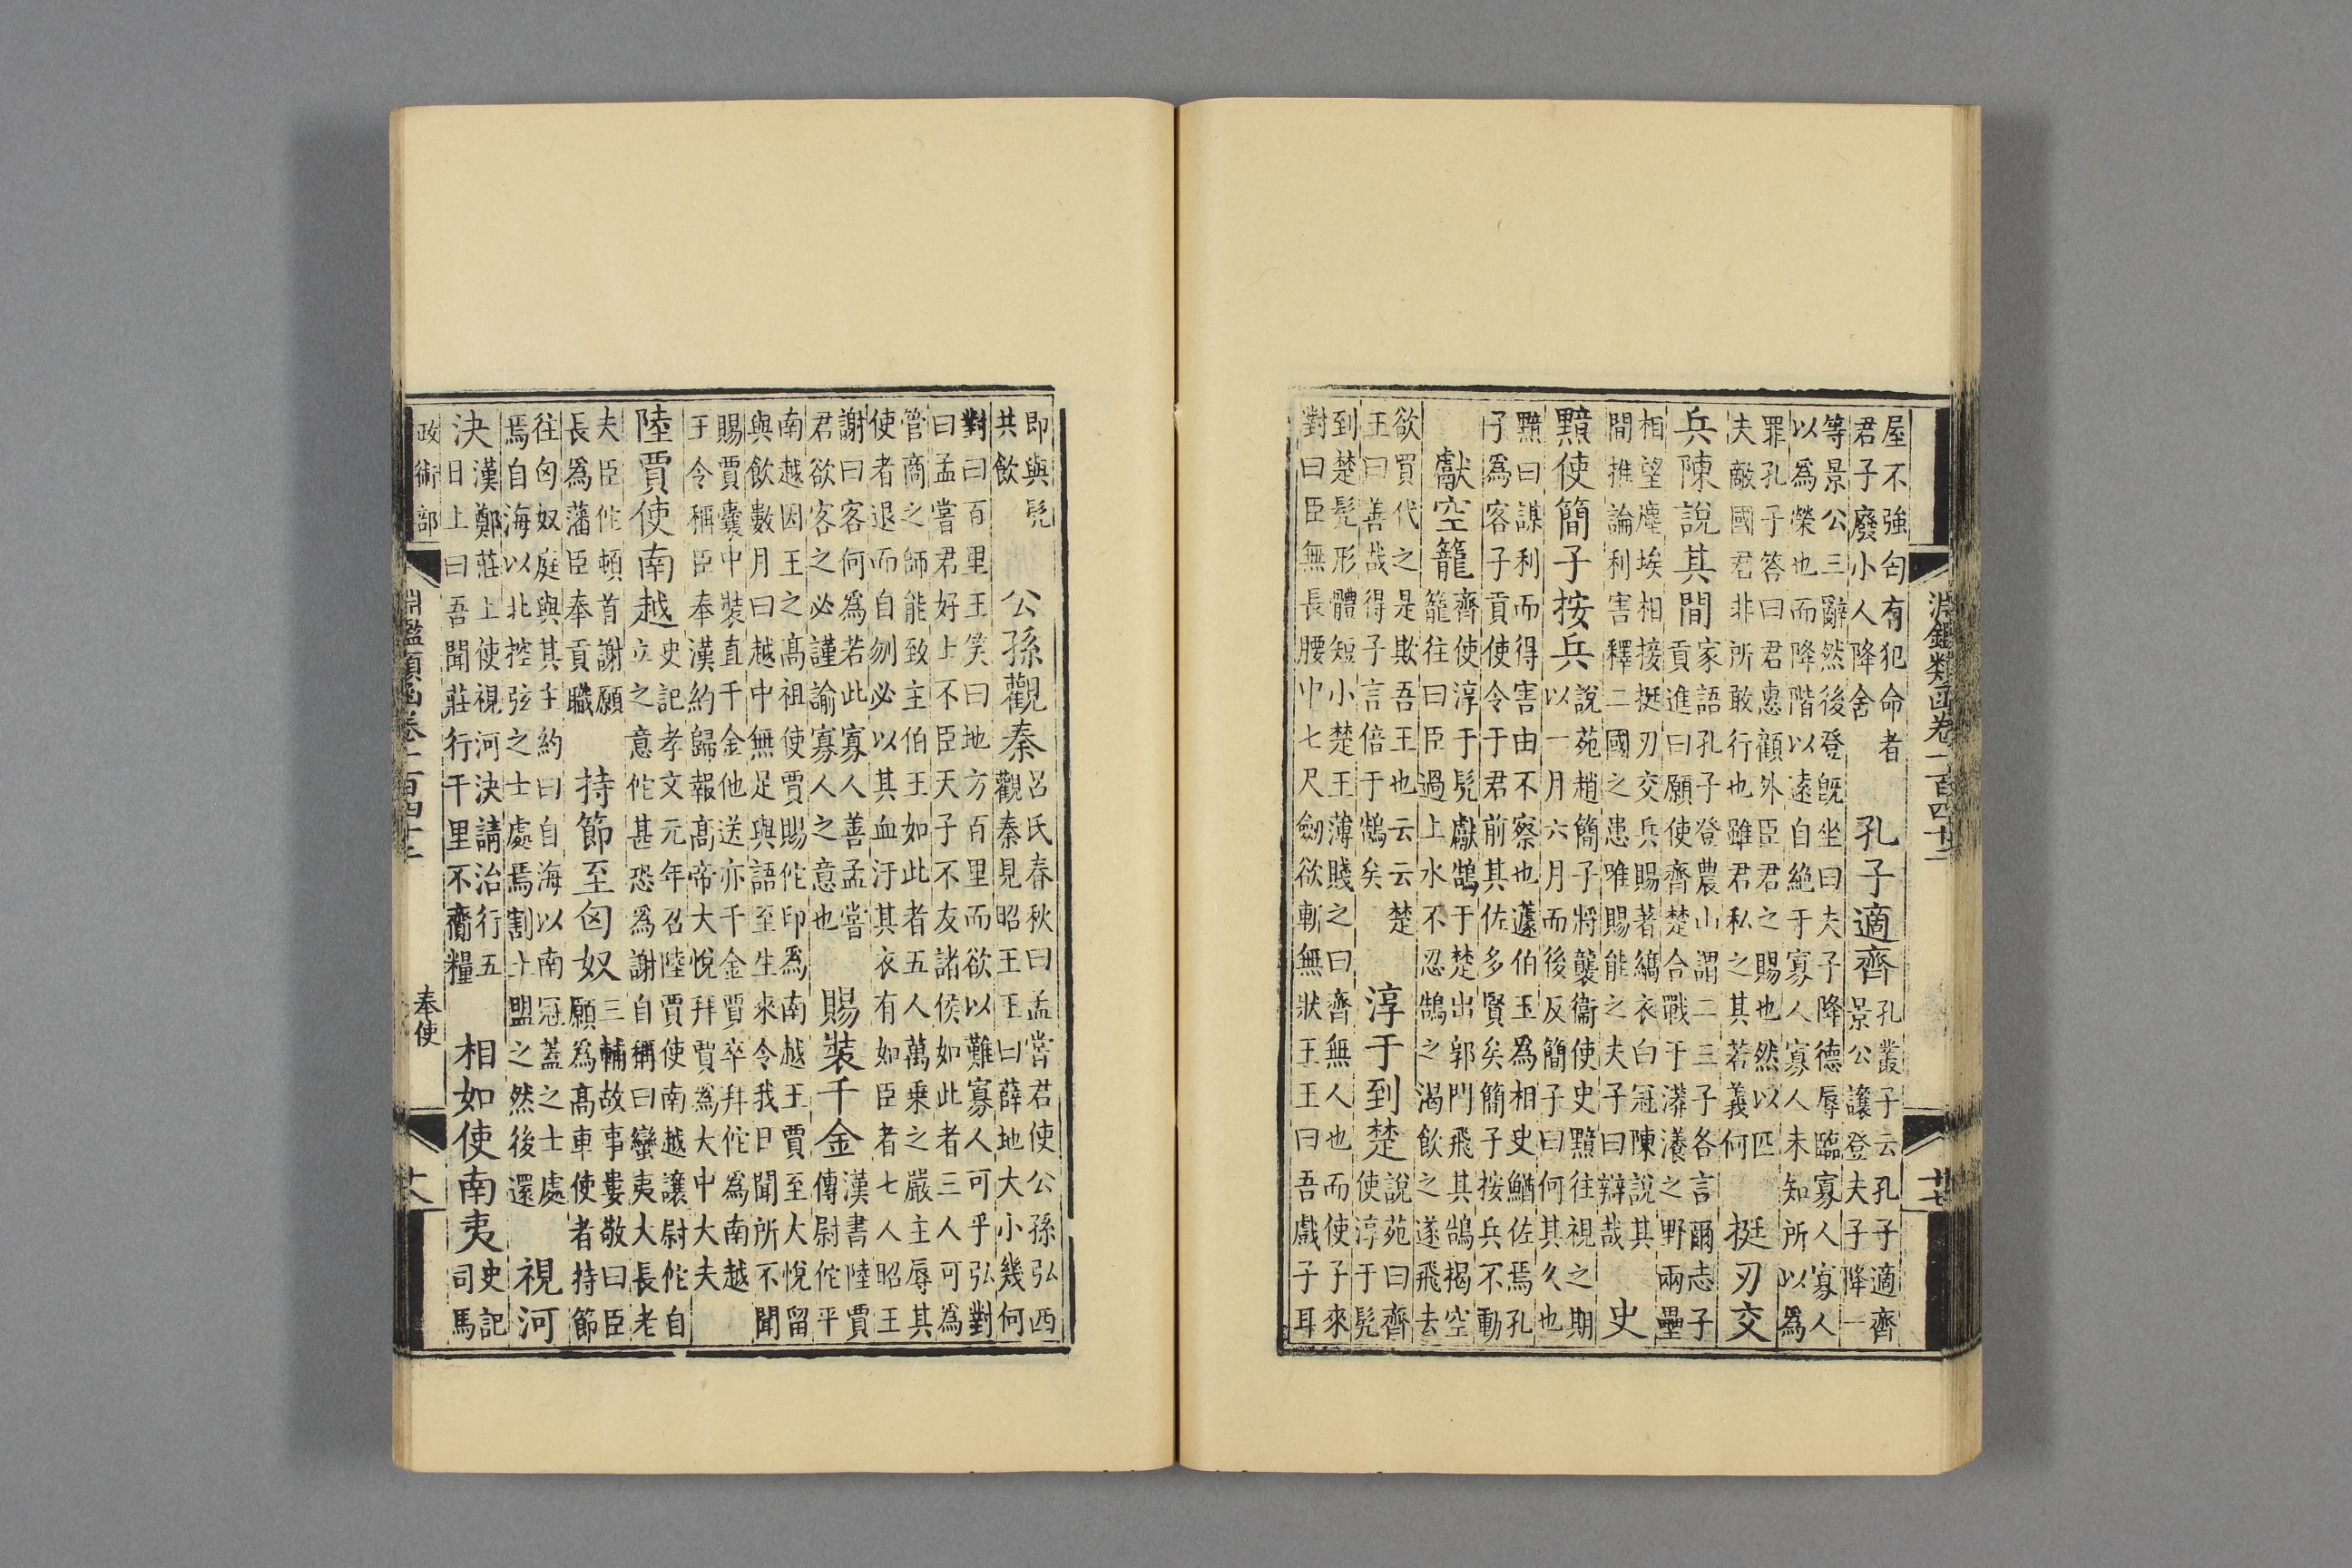 淵鑑類函卷二百四十二
廿七
屋不強匄有犯命者
君子廢小人降舍
孔子適齊
孔叢子云孔子適齊
景公讓登夫子降一
等景公三辭然後登旣坐曰夫子降德辱臨寡人寡人
以爲榮也而降階以遠自絶于寡人寡人未知所以爲
罪孔子答曰君惠顧外臣君之賜也然以匹
夫敵國君非所敢行也雖君私之其若義何
挺刃交
兵陳說其間
家語孔子登農山謂二三子各言爾志子
貢進曰願使齊楚合戰于漭瀁之野兩壘
相望塵埃相接挺刃交兵賜著縞衣白冠陳說其
間推論利害釋二國之患唯賜能之夫子曰辯哉
史
黯使簡子按兵
說苑趙簡子將襲衞使史黯往視之期
以一月六月而後反簡子曰何其久也
黯曰謀利而得害由不察也蘧伯玉爲相史鰌佐焉孔
子爲客子貢使令于君前其佐多賢矣簡子按兵不動
獻空籠
齊使淳于髡獻鵠于楚出郭門飛其鵠揭空
籠往曰臣過上水不忍鵠之渴飲之遂飛去
欲買代之是欺吾王也云云楚
王曰善哉得子言倍于鵠矣
淳于到楚
說苑曰齊
使淳于髡
到楚髡形體短小楚王薄賤之曰齊無人也而使子來
對曰臣無長腰中七尺劒欲斬無狀王王曰吾戲子耳
即與髡
共飲
公孫觀秦
呂氏春秋曰孟嘗君使公孫弘西
觀秦見昭王王曰薛地大小幾何
對曰百里王笑曰地方百里而欲以難寡人可乎弘對
曰孟嘗君好上不臣天子不友諸侯如此者三人可爲
管商之師能致主伯王如此者五人萬乗之嚴主辱其
使者退而自刎必以其血汙其衣有如臣者七人昭王
謝曰客何爲若此寡人善孟嘗
君欲客之必謹諭寡人之意也
賜裝千金
漢書陸賈
傳尉佗平
南越因王之高祖使賈賜佗印爲南越王賈至大悅留
與飲數月曰越中無足與語至生來令我日聞所不聞
賜賈囊中裝直千金他送亦千金賈卒拜佗爲南越
于令稱臣奉漢約歸報高帝大悅拜賈爲大中大夫
陸賈使南越
史記孝文元年召陸賈使南越讓尉佗自
立之意佗甚恐爲謝自稱曰蠻夷大長老
夫臣佗頓首謝願
長爲藩臣奉貢職
持節至匈奴
三輔故事婁敬曰臣
願爲高車使者持節
往匈奴庭與其主約曰自海以南冠蓋之士處
焉自海以北控弦之士處焉割土盟之然後還
視河
決
漢鄭莊上使視河決請治行五
日上曰吾聞莊行千里不齎糧
相如使南夷
史記
司馬
政術部
淵鑑類函卷二百四十二
奉使